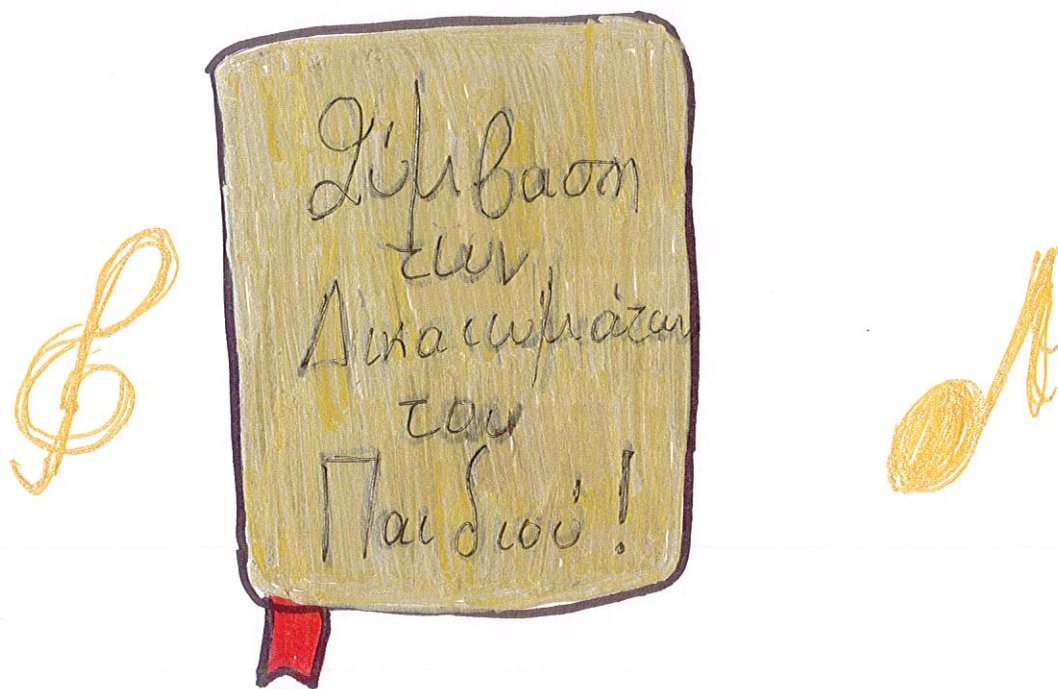 Σύμβαση
των
Δικαιωμάτων
του
Παιδιού!